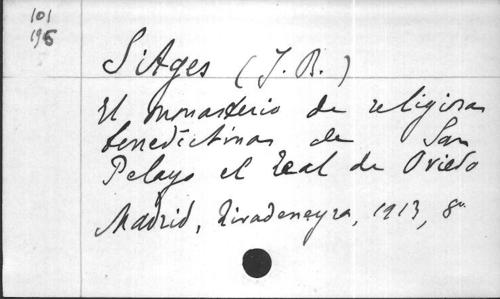 101
196
Sitges (J. B.)
El monasterio de religiosas
benedictinas de San
Pelayo el Real de Oviedo
Madrid, Rivadeneyra, 1913, 8º